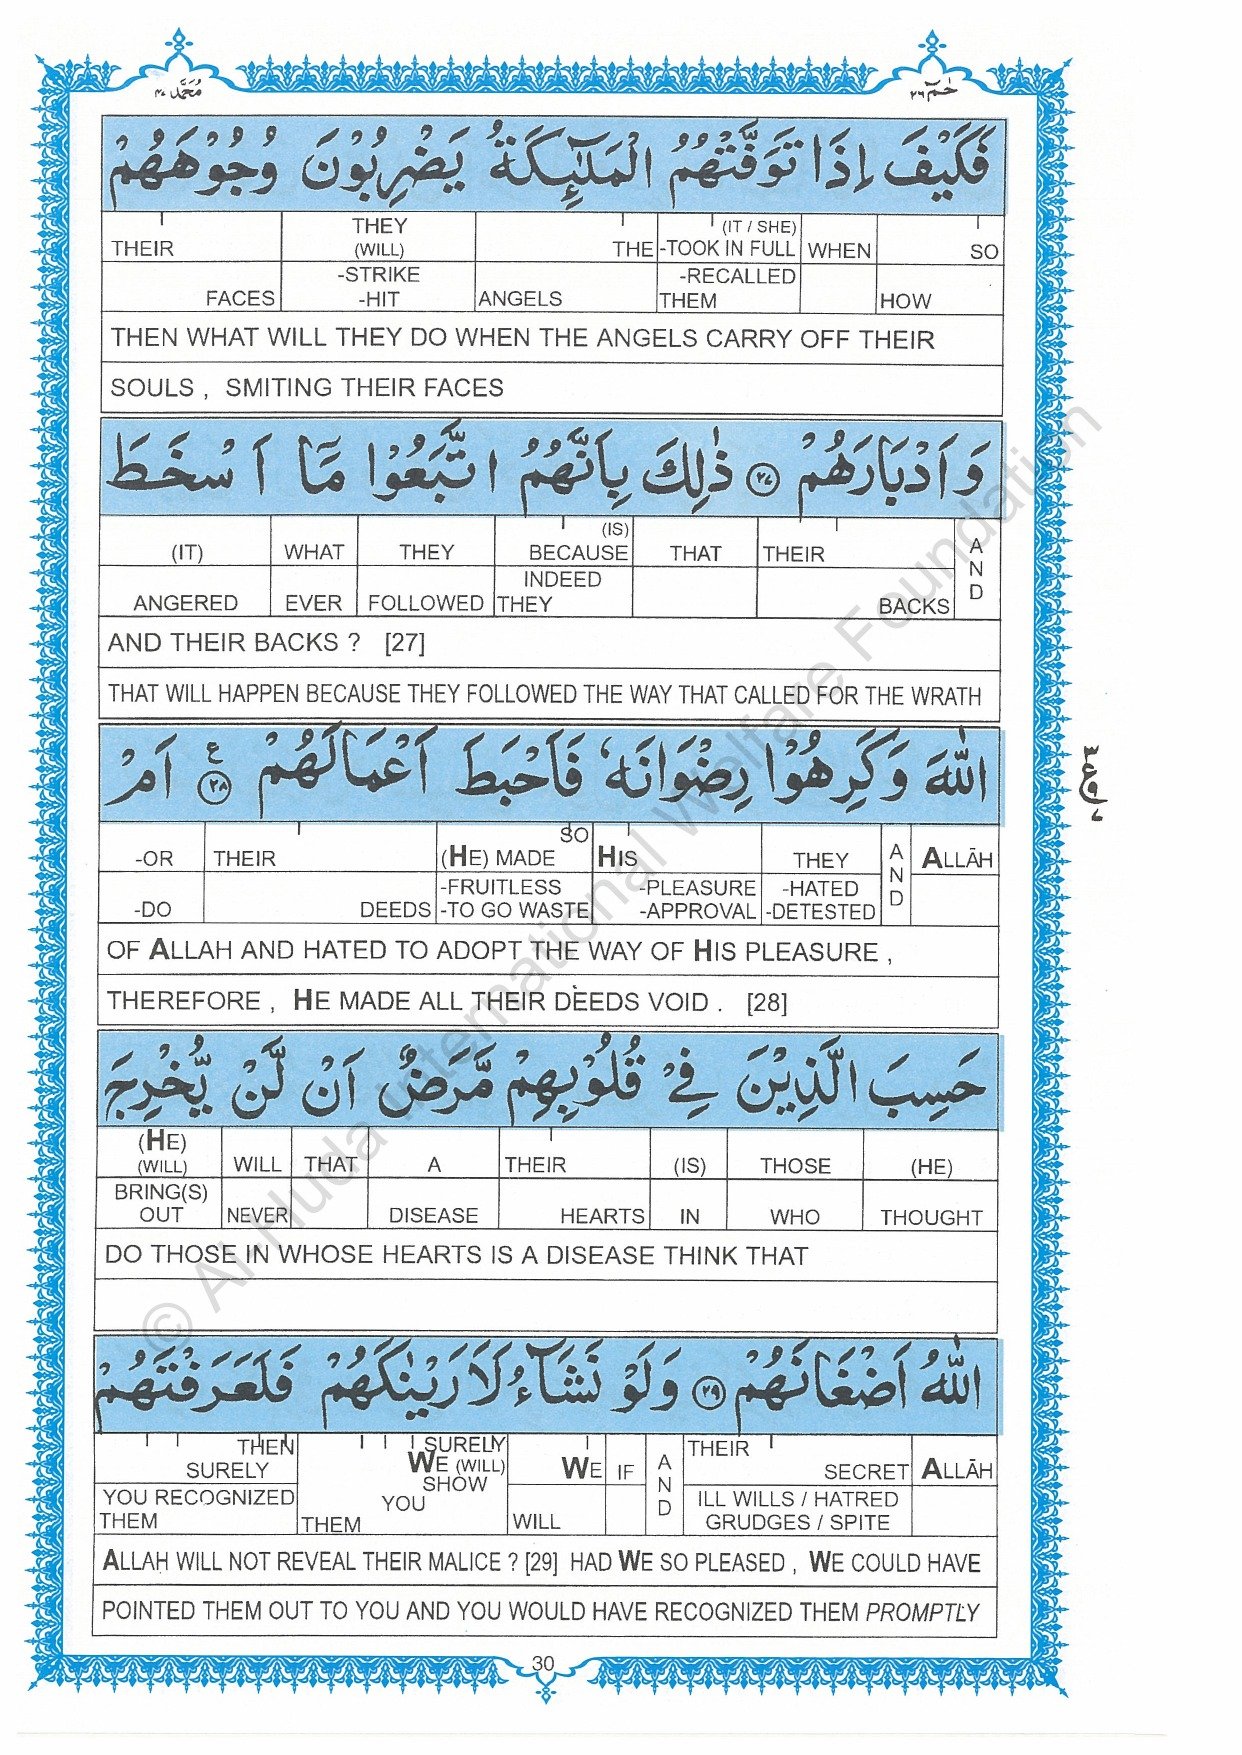 محمد ٤٧
حٰمٓ ٢٦
فَكَيْفَ اِذَا تَوَفَّتْهُمُ الْمَلٰٓئِكَةُ يَضْرِبُوْنَ وُجُوْهَهُمْ
THEIR THEY (WILL) THE (IT / SHE) -TOOK IN FULL WHEN SO
FACES -STRIKE -HIT ANGELS -RECALLED THEM HOW
THEN WHAT WILL THEY DO WHEN THE ANGELS CARRY OFF THEIR
SOULS , SMITING THEIR FACES
وَاَدْبَارَهُمْ ﴿٢٧﴾ ذٰلِكَ بِاَنَّهُمُ اتَّبَعُوْا مَاۤ اَسْخَطَ
(IT) WHAT THEY (IS) BECAUSE THAT THEIR AND
ANGERED EVER FOLLOWED INDEED THEY BACKS
AND THEIR BACKS ? [27]
THAT WILL HAPPEN BECAUSE THEY FOLLOWED THE WAY THAT CALLED FOR THE WRATH
اللّٰهَ وَكَرِهُوْا رِضْوَانَهٗ فَاَحْبَطَ اَعْمَالَهُمْ ﴿٢٨﴾ ع اَمْ
-OR THEIR SO (HE) MADE HIS THEY AND ALLĀH
-DO DEEDS -FRUITLESS -TO GO WASTE -PLEASURE -APPROVAL -HATED -DETESTED
OF ALLAH AND HATED TO ADOPT THE WAY OF HIS PLEASURE ,
THEREFORE , HE MADE ALL THEIR DEEDS VOID . [28]
حَسِبَ الَّذِيْنَ فِيْ قُلُوْبِهِمْ مَّرَضٌ اَنْ لَّنْ يُّخْرِجَ
(HE) (WILL) WILL THAT A THEIR (IS) THOSE (HE)
BRING(S) OUT NEVER DISEASE HEARTS IN WHO THOUGHT
DO THOSE IN WHOSE HEARTS IS A DISEASE THINK THAT
اللّٰهُ اَضْغَانَهُمْ ﴿٢٩﴾ وَلَوْ نَشَآءُ لَاَرَيْنٰكَهُمْ فَلَعَرَفْتَهُمْ
THEN SURELY SURELY WE (WILL) SHOW WE IF AND THEIR SECRET ALLĀH
YOU RECOGNIZED THEM YOU THEM WILL ILL WILLS / HATRED GRUDGES / SPITE
ALLAH WILL NOT REVEAL THEIR MALICE ? [29] HAD WE SO PLEASED , WE COULD HAVE
POINTED THEM OUT TO YOU AND YOU WOULD HAVE RECOGNIZED THEM PROMPTLY
30
© Al Huda International Welfare Foundation